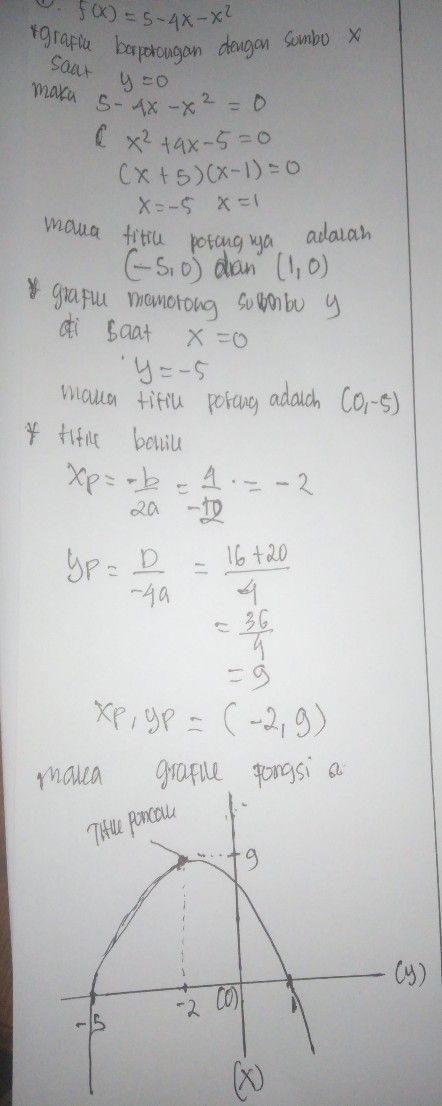 f(x) = 5 - 4x - x²
*grafik berpotongan dengan sumbu x
saat y = 0
maka 5 - 4x - x² = 0
( x² + 4x - 5 = 0
(x + 5)(x - 1) = 0
x = -5 x = 1
maka titik potongnya adalah
(-5,0) dan (1,0)
* grafik memotong sumbu y
di saat x = 0
y = -5
maka titik potong adalah (0,-5)
* titik balik
xp = -b/2a = 4/-2 = -2
yp = D/-4a = 16+20/4
= 36/4
= 9
xp, yp = (-2, 9)
maka grafik fongsi a
Titik puncak
9
(y)
-5 -2 (0) 1
(x)